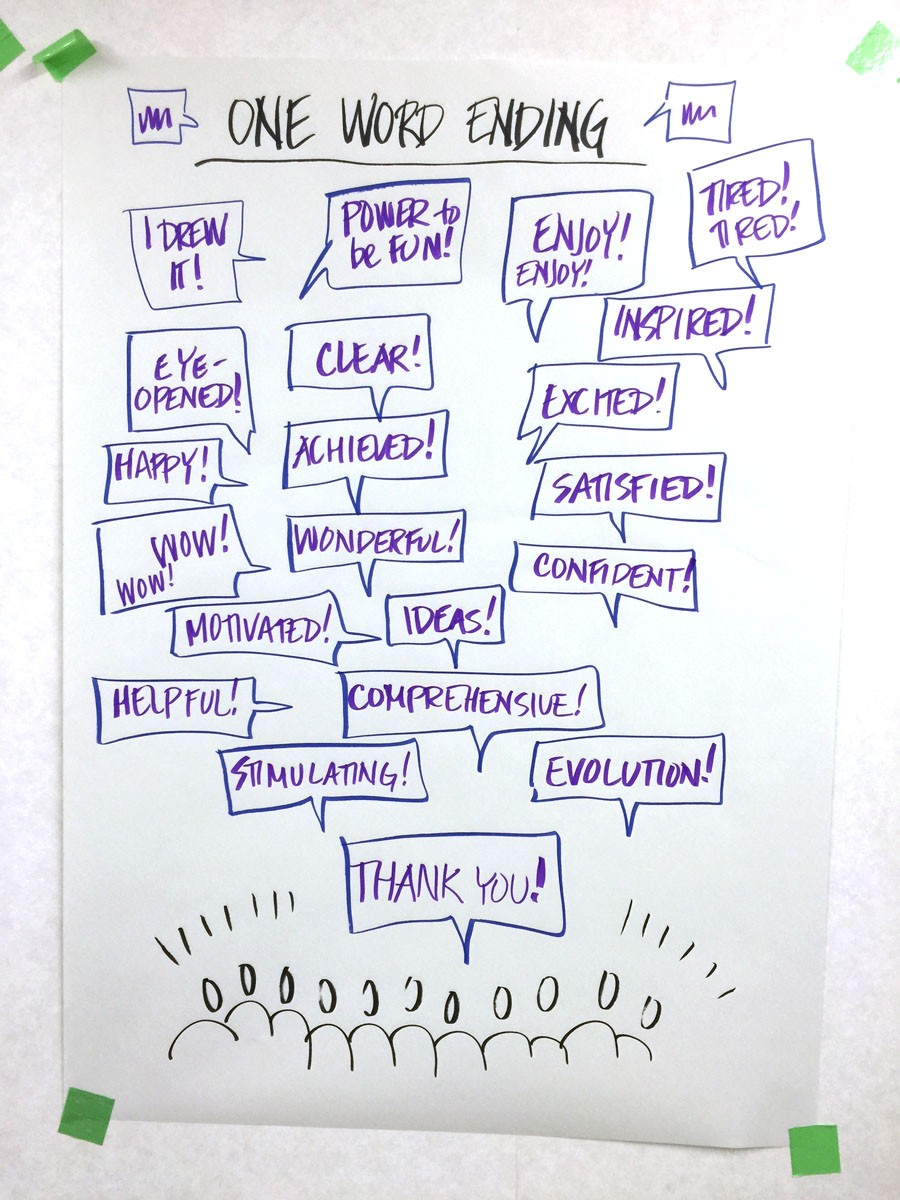 ONE WORD ENDING
I DREW
IT!
POWER to
be FUN!
ENJOY!
ENJOY!
TIRED!
TIRED!
INSPIRED!
EYE-
OPENED!
CLEAR!
EXCITED!
HAPPY!
ACHIEVED!
SATISFIED!
WOW!
WOW!
WONDERFUL!
CONFIDENT!
MOTIVATED!
IDEAS!
HELPFUL!
COMPREHENSIVE!
STIMULATING!
EVOLUTION!
THANK YOU!